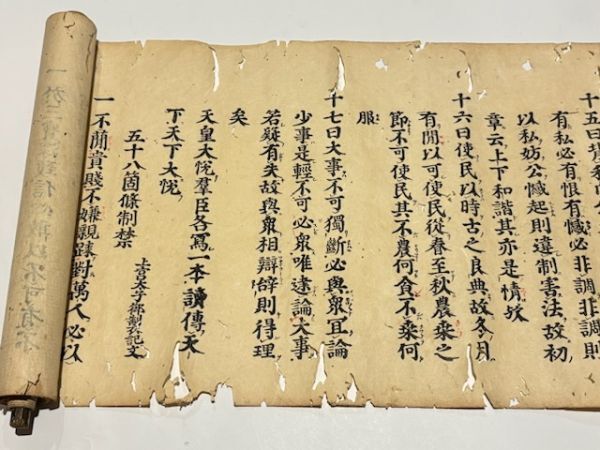 有私必有恨有憾必非調非調則
以私妨公憾起則違制害法故初
章云上下和諧其亦是情故
十六曰使民以時古之良典故冬月
有間以可使民從春至秋農桒之
節不可使民其不農何食不桒何
服
十七曰大事不可獨斷必與衆冝論
少事是輕不可必衆唯逮論大事
若疑有失故與衆相辯辭則得理
矣
天皇大悦羣臣各寫一本讀傳天
下天下大悦
五十八箇條制禁
上宮太子御製記文
一不簡貴賤不嫌親踈對萬人必以